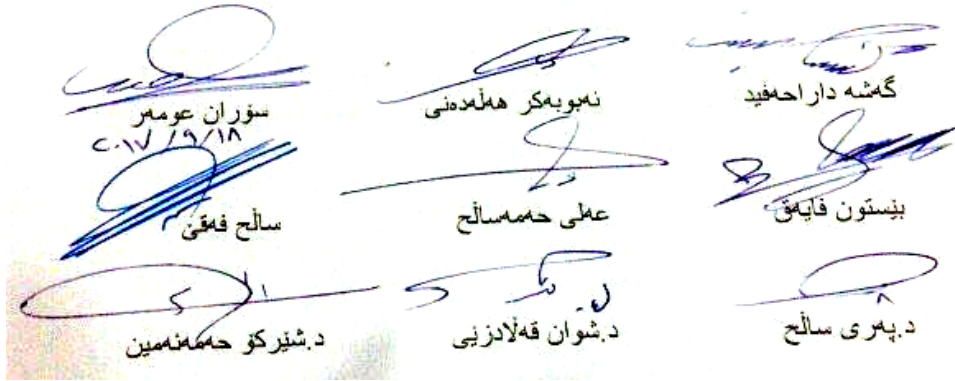 گەشە دارا حەفید	ئەبوبەکر هەڵەدەنی	سۆران عومەر
٢٠١٧/٩/١٨
بێستون فایەق	عەلی حەمەساڵح	ساڵح فەقێ
د.پەری ساڵح	د.شوان قەڵادزێی	د.شێرکۆ حەمەئەمین